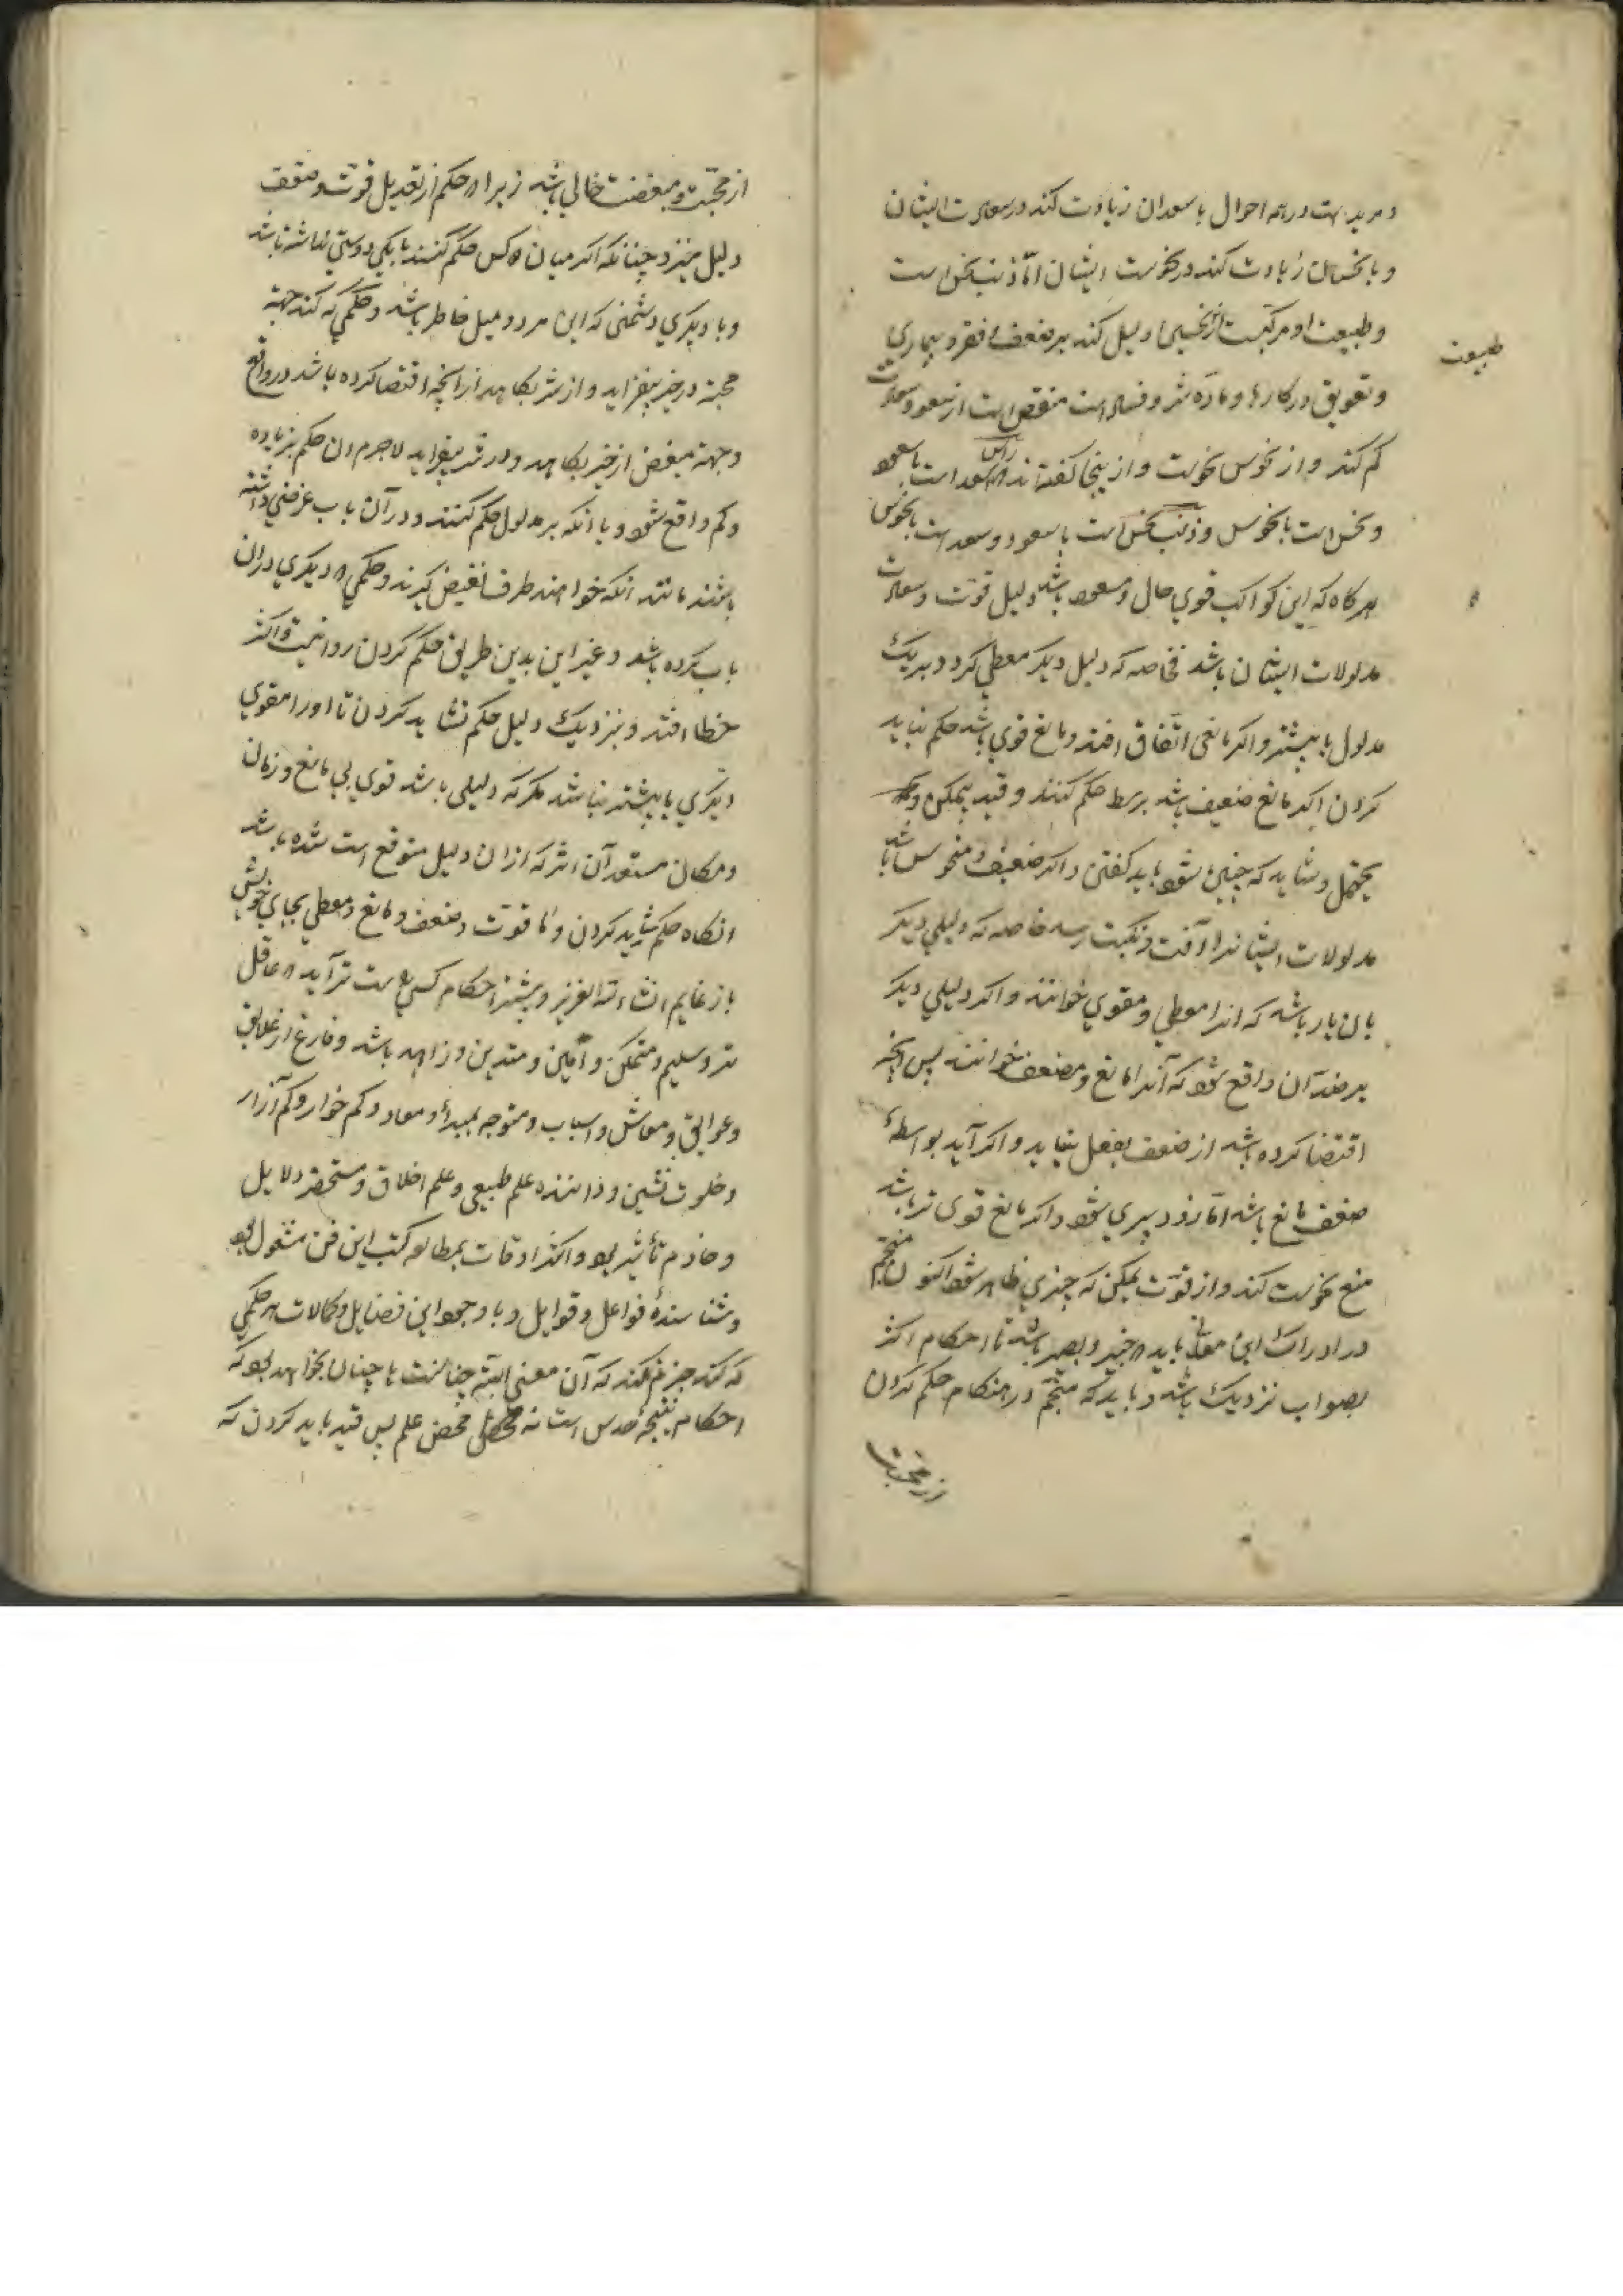 و مزید است در همه احوال با سعدان زیادت کند در سعادت ایشان
و با نحسان زیادت کند در نحوست ایشان اما ذنب نحس است
و طبیعت او مرکبست از نحسین دلیل کند بر ضعف و فقر و بیماری
طبیعت
و تعویق در کارها و ماده شر و فساد است منقص است از سعود سعادت
کم کند و از نحوس نحوست و از ینجا گفته‌اند که راس سعد است با سعود
و نحس است با نحوس و ذنب نحس است با سعود و سعد است با نحوس
هر کاه که این کواکب قوی حال و مسعود باشد دلیل قوت و سعادت
مدلولات ایشان باشد خاصه که دلیل دیکر معطی کردد بر یک
مدلول یا بیشتر و اکر مانعی اتفاق افتد و مانع قوی باشد حکم نباید
کردن اکر مانع ضعیف باشد بر سط حکم کنند و قید بیمکن و
یحتمل و شاید که چنین شود باید کفتن و اکر ضعیف و منحوس باشد
مدلولات ایشانرا آفت و نکبت رسد خاصه که دلیلی دیکر
بان یار باشد که انرا معطی و مقوی خوانند و اکر دلیلی دیکر
بر ضد آن واقع شود که آنرا مانع و مضعف خوانند پس آنچه
اقتضا کرده باشد از ضعف بفعل نیاید و اکر آید بواسطهٔ
ضعف مانع باشد اما زود سپری شود و اکر مانع قوی تر باشد
منع نحوست کند و از قوت یمکن که چیزی ظاهر شود اکنون منجم
در ادراک این معانی باید که خبیر و بصیر باشد تا احکام اکثر
بصواب نزدیک باشد و باید که منجم در هنکام حکم کردن
از محبت
از محبت و مبغضت خالی باشد زیرا که حکم از تعدیل قوت و ضعف
دلیل خیزد چنانکه اکر میان دو کس حکم کنند با یکی دوستی داشته باشد
و با دیکری دشمنی که این هر دو میل خاطر باشد و حکمی که کند جهة
محبة در خیر بیفزاید و از شر بکاهد از انچه اقتضا کرده باشد در واقع
و جهة مبغض از خیر بکاهد و در شر بیفزاید لاجرم ان حکم بزیاده
و کم واقع شود و یا انکه بر مدلول حکم کنند و در آن باب غرضی داشته
باشند مانند انکه خواهند طرف نقیض کیرند و حکمی که دیکری در ان
باب کرده باشد و غیر این بدین طریق حکم کردن روا نیست و اکثر
خطا افتد و نیز بیک دلیل حکم نشاید کردن تا او را مقوی
دیکری یا بیشتر نباشد مکر که دلیلی باشد قوی بی مانع و زمان
و مکان مستعد آن اثر که از ان دلیل متوقع است شده باشد
انکاه حکم شاید کردن و ما قوت و ضعف و مانع و معطی بجای خویش
باز نمایم انشاء الله العزیز و بیشتر احکام کسی راست تر آید که عاقل
تر و سلیم و متمکن و امین و متدین و زاهد باشد و فارغ از علایق
و عوایق و معاش و اسباب و متوجه بمبدأ و معاد و کم خوار و کم آزار
و خلوت نشین و داننده علم طبیعی و علم اخلاق و مستحضر دلایل
و خادم تأثیر بود و اکثر اوقات بمطالعه کتب این فن مشغول بود
و شناسندهٔ فواعل و قوابل و با وجود این فضایل و کمالات هر حکمی
که کند جزم نکند که آن معنی البته چنانست یا چنان بخواهد بود که
احکام نتیجهٔ حدس است نه محض علم پس قید باید کردن که